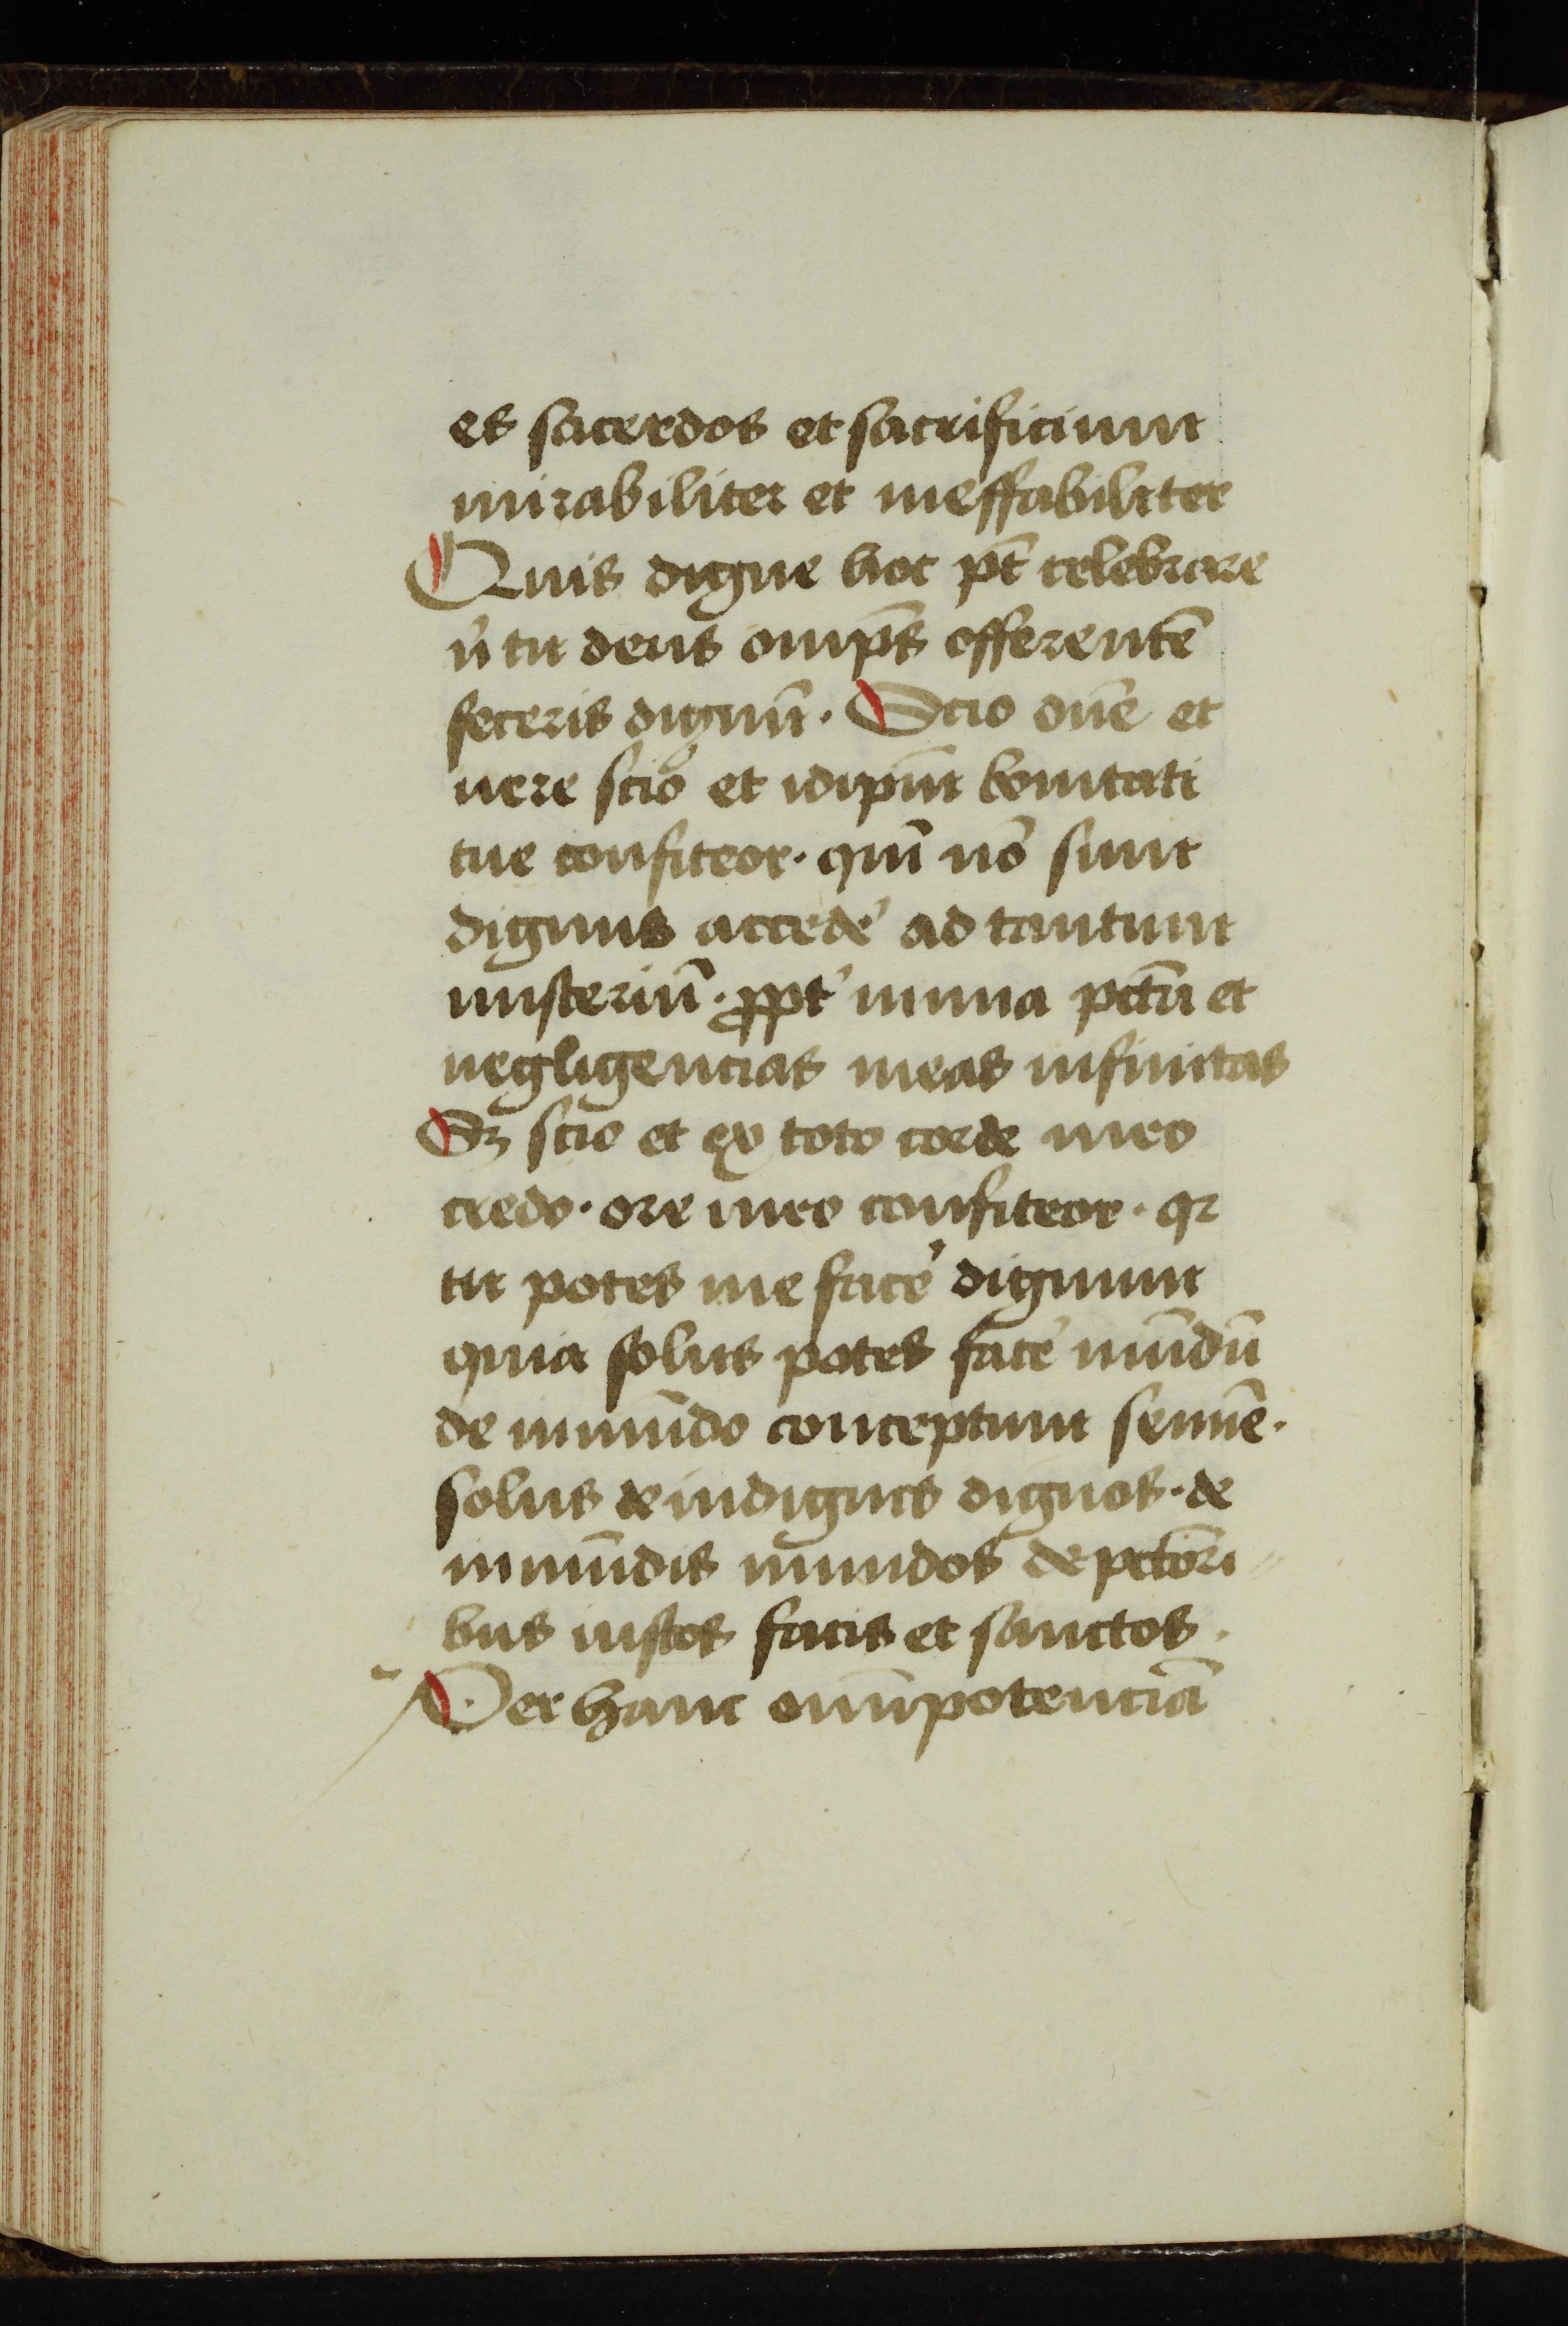 es sacerdos et sacrificium
mirabiliter et ineffabiliter
Quis digne hoc pt̄ celebrare
n̉ tu deus omp̄s offerentē
feceris dignū. Scio dn̄e et
uere scio et idip̄m bonitati
tue confiteor. qm̄ nō sum
dignus accede᾽ ad tantum
misteriū. ꝓpt᾽ nimia pctā et
negligencias meas infinitas
Sꝫ scio et ex toto corde meo
credo. ore meo confiteor. qꝛ
tu potes me face᾽ dignum
quia solus potes face᾽ mūdū
de inmūdo conceptum semīe.
solus de indignis dignos. de
inmūdis mundos de pctōri
bus iustos facis et sanctos.
Per hanc omīpotenciā